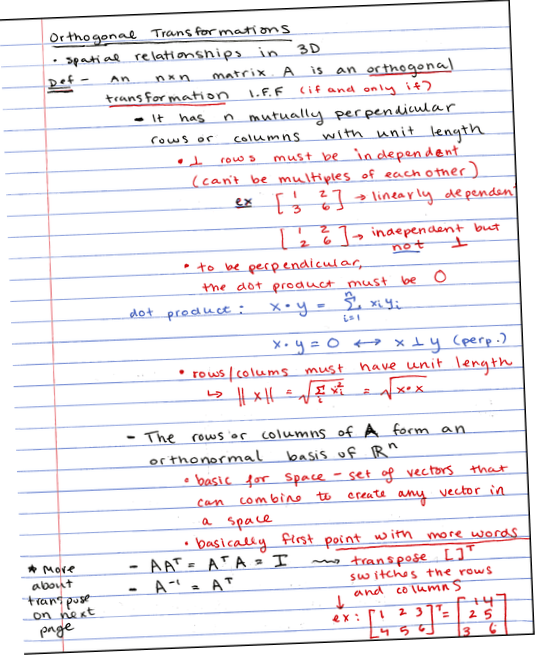 Orthogonal Transformations
• spatial relationships in 3D
Def - An nxn matrix A is an orthogonal
transformation I.F.F (if and only if)
- It has n mutually perpendicular
rows or columns with unit length
• ⊥ rows must be independent
(can't be multiples of each other)
ex [1 2 3 6] → linearly dependen
[1 2 2 6] → independent but
not ⊥
• to be perpendicular,
the dot product must be 0
dot product: x • y = n Σ i=1 xiyi
x • y = 0 ↔ x ⊥ y (perp.)
• rows/colums must have unit length
↳ ||x|| = √Σi xi² = √x•x
- The rows or columns of A form an
orthonormal basis of ℝⁿ
• basic for space - set of vectors that
can combine to create any vector in
a space
• basically first point with more words
- AAᵀ = AᵀA = I ⟿ transpose [ ]ᵀ
- A⁻¹ = Aᵀ
switches the rows
and columns
↓
ex: [1 2 3 4 5 6]ᵀ = [1 4 2 5 3 6]
* More
about
transpose
on next
page